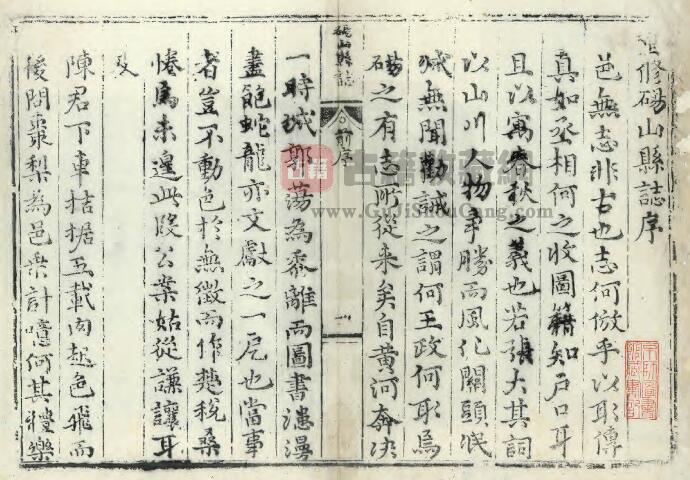 重修碭山縣誌序
邑無志非古也志何倣乎以彰傳
真如丞相何之收圖籍知戶口耳
且以寓春秋之義也若張大其詞
以山川人物爭勝而風化關頭泯
滅無聞勸誡之謂何王政何取焉
碭之有志所從来矣自黃河奔决
碭山縣誌
前序
一
一時城郭蕩為黍離而圖書漶漫
盡飽蛇龍亦文獻之一厄也當事
者豈不動色於無徵而作楚稅桑
惓焉未遑此段公案姑從謙讓耳
及
陳君下車拮据五載内起色飛而
後問棗梨為邑乘計噫何其禮樂
古籍收藏網
www.GuJiShouCang.com
古籍